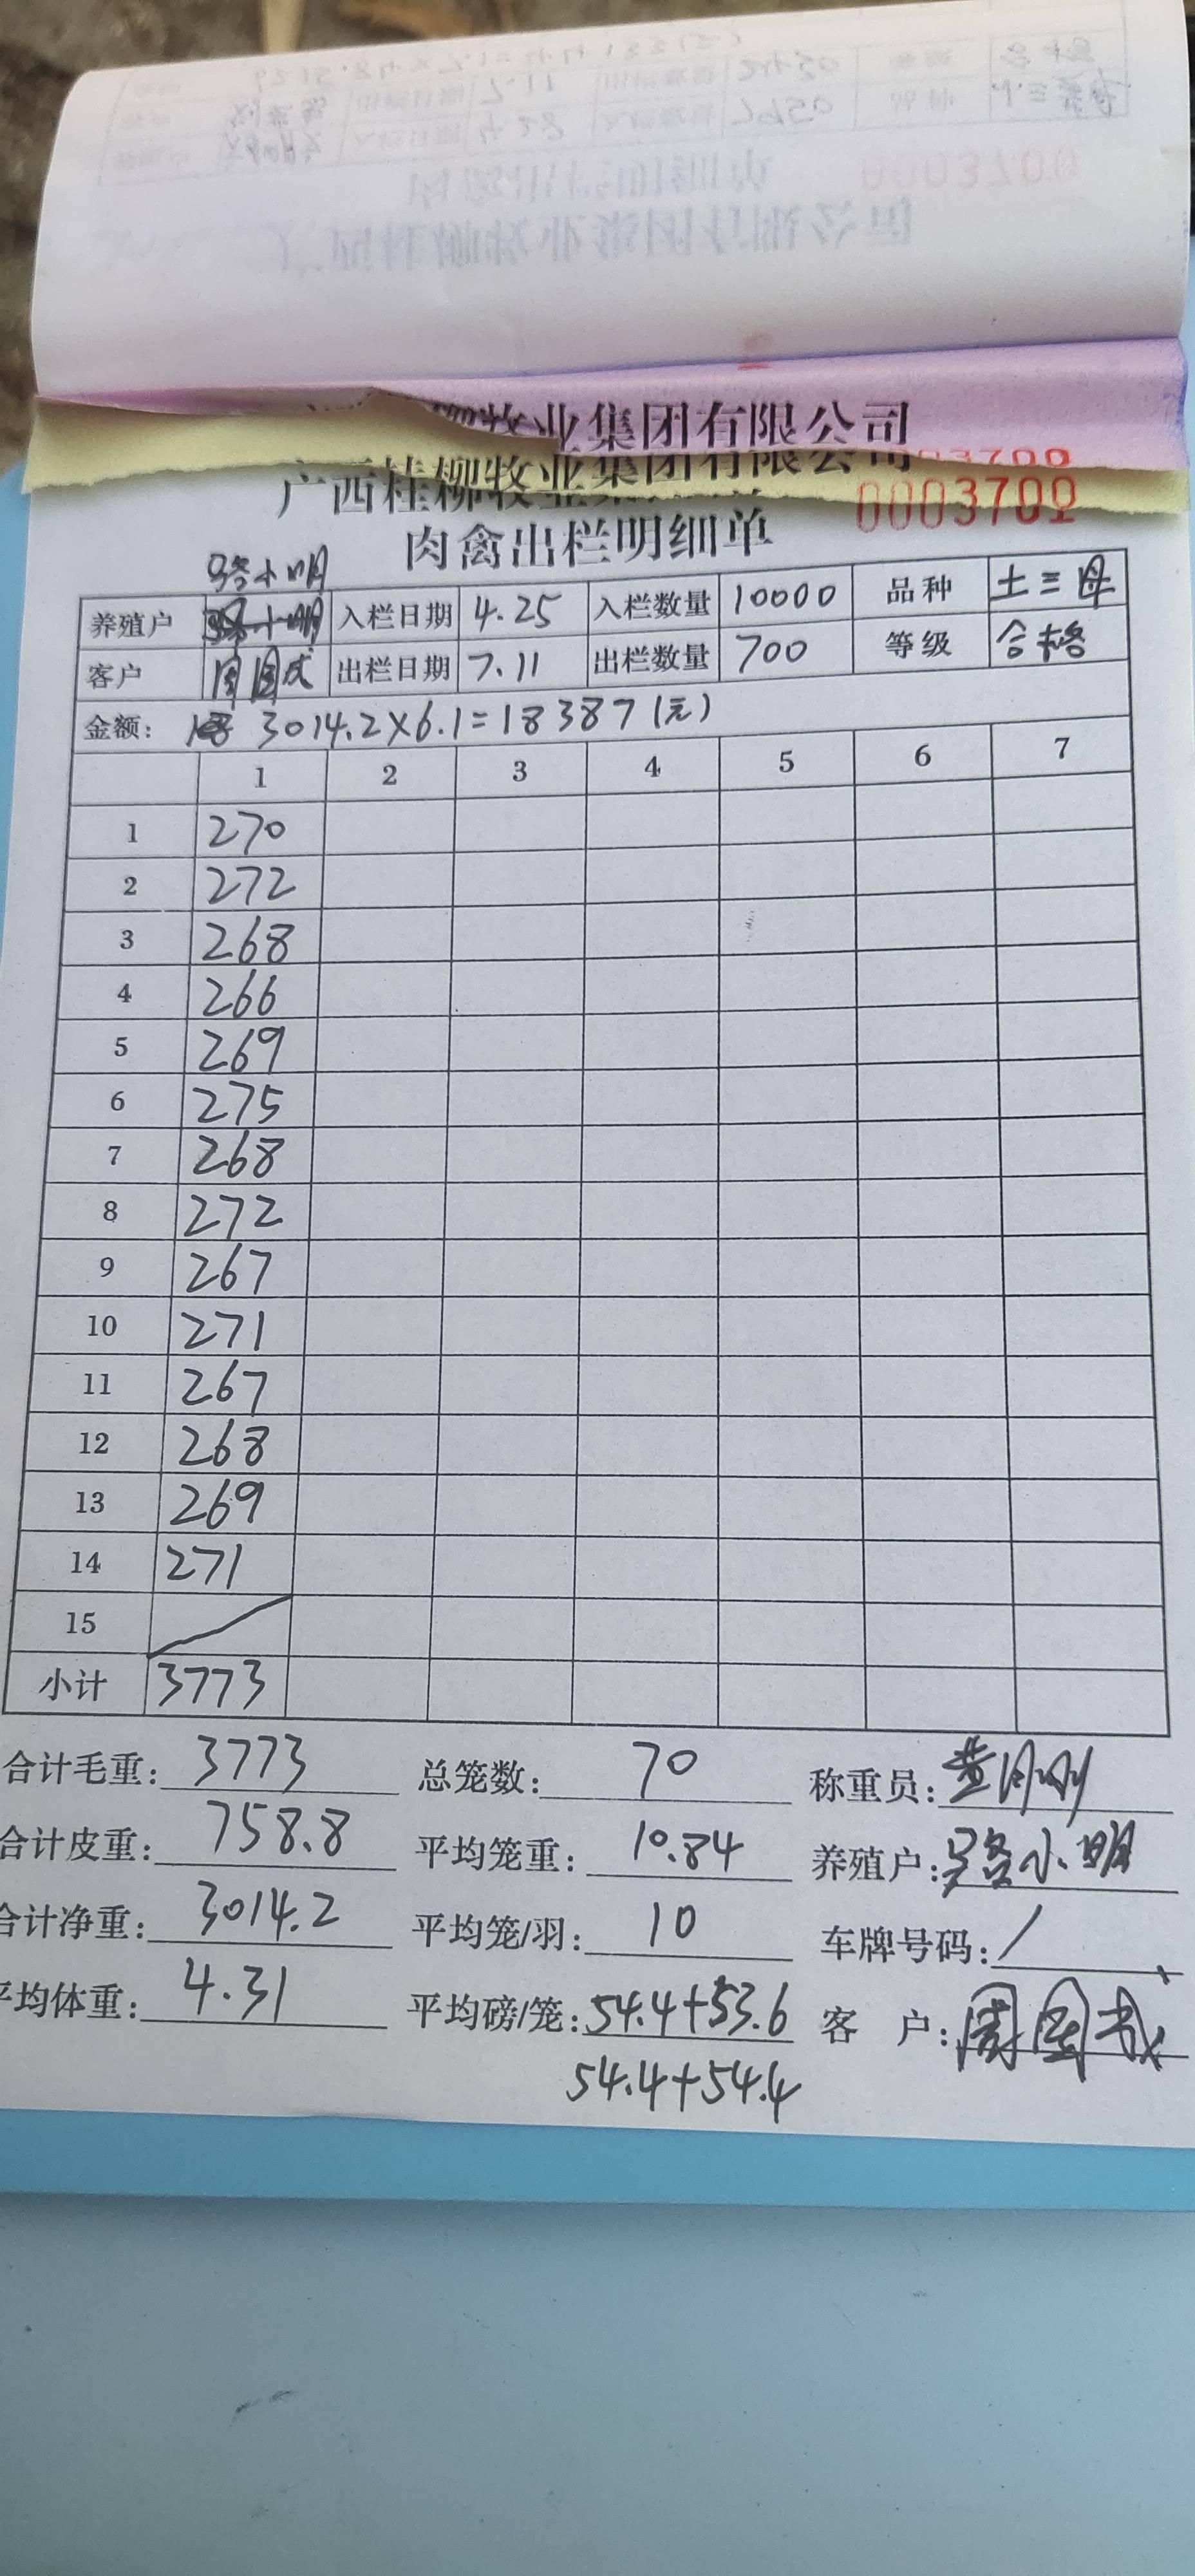 柳牧业集团有限公司
广西桂柳牧业集团有限公司
0003700
肉禽出栏明细单
骆小明
养殖户 入栏日期 4.25 入栏数量 10000 品种 土三母
客户 出栏日期 7.11 出栏数量 700 等级 合格
金额: 3014.2×6.1=18387(元)
1 2 3 4 5 6 7
1 270
2 272
3 268
4 266
5 269
6 275
7 268
8 272
9 267
10 271
11 267
12 268
13 269
14 271
15
小计 3773
合计毛重: 3773 总笼数: 70 称重员:
合计皮重: 758.8 平均笼重: 10.84 养殖户: 骆小明
合计净重: 3014.2 平均笼/羽: 10 车牌号码: /
平均体重: 4.31 平均磅/笼: 54.4+53.6 客 户:
54.4+54.4